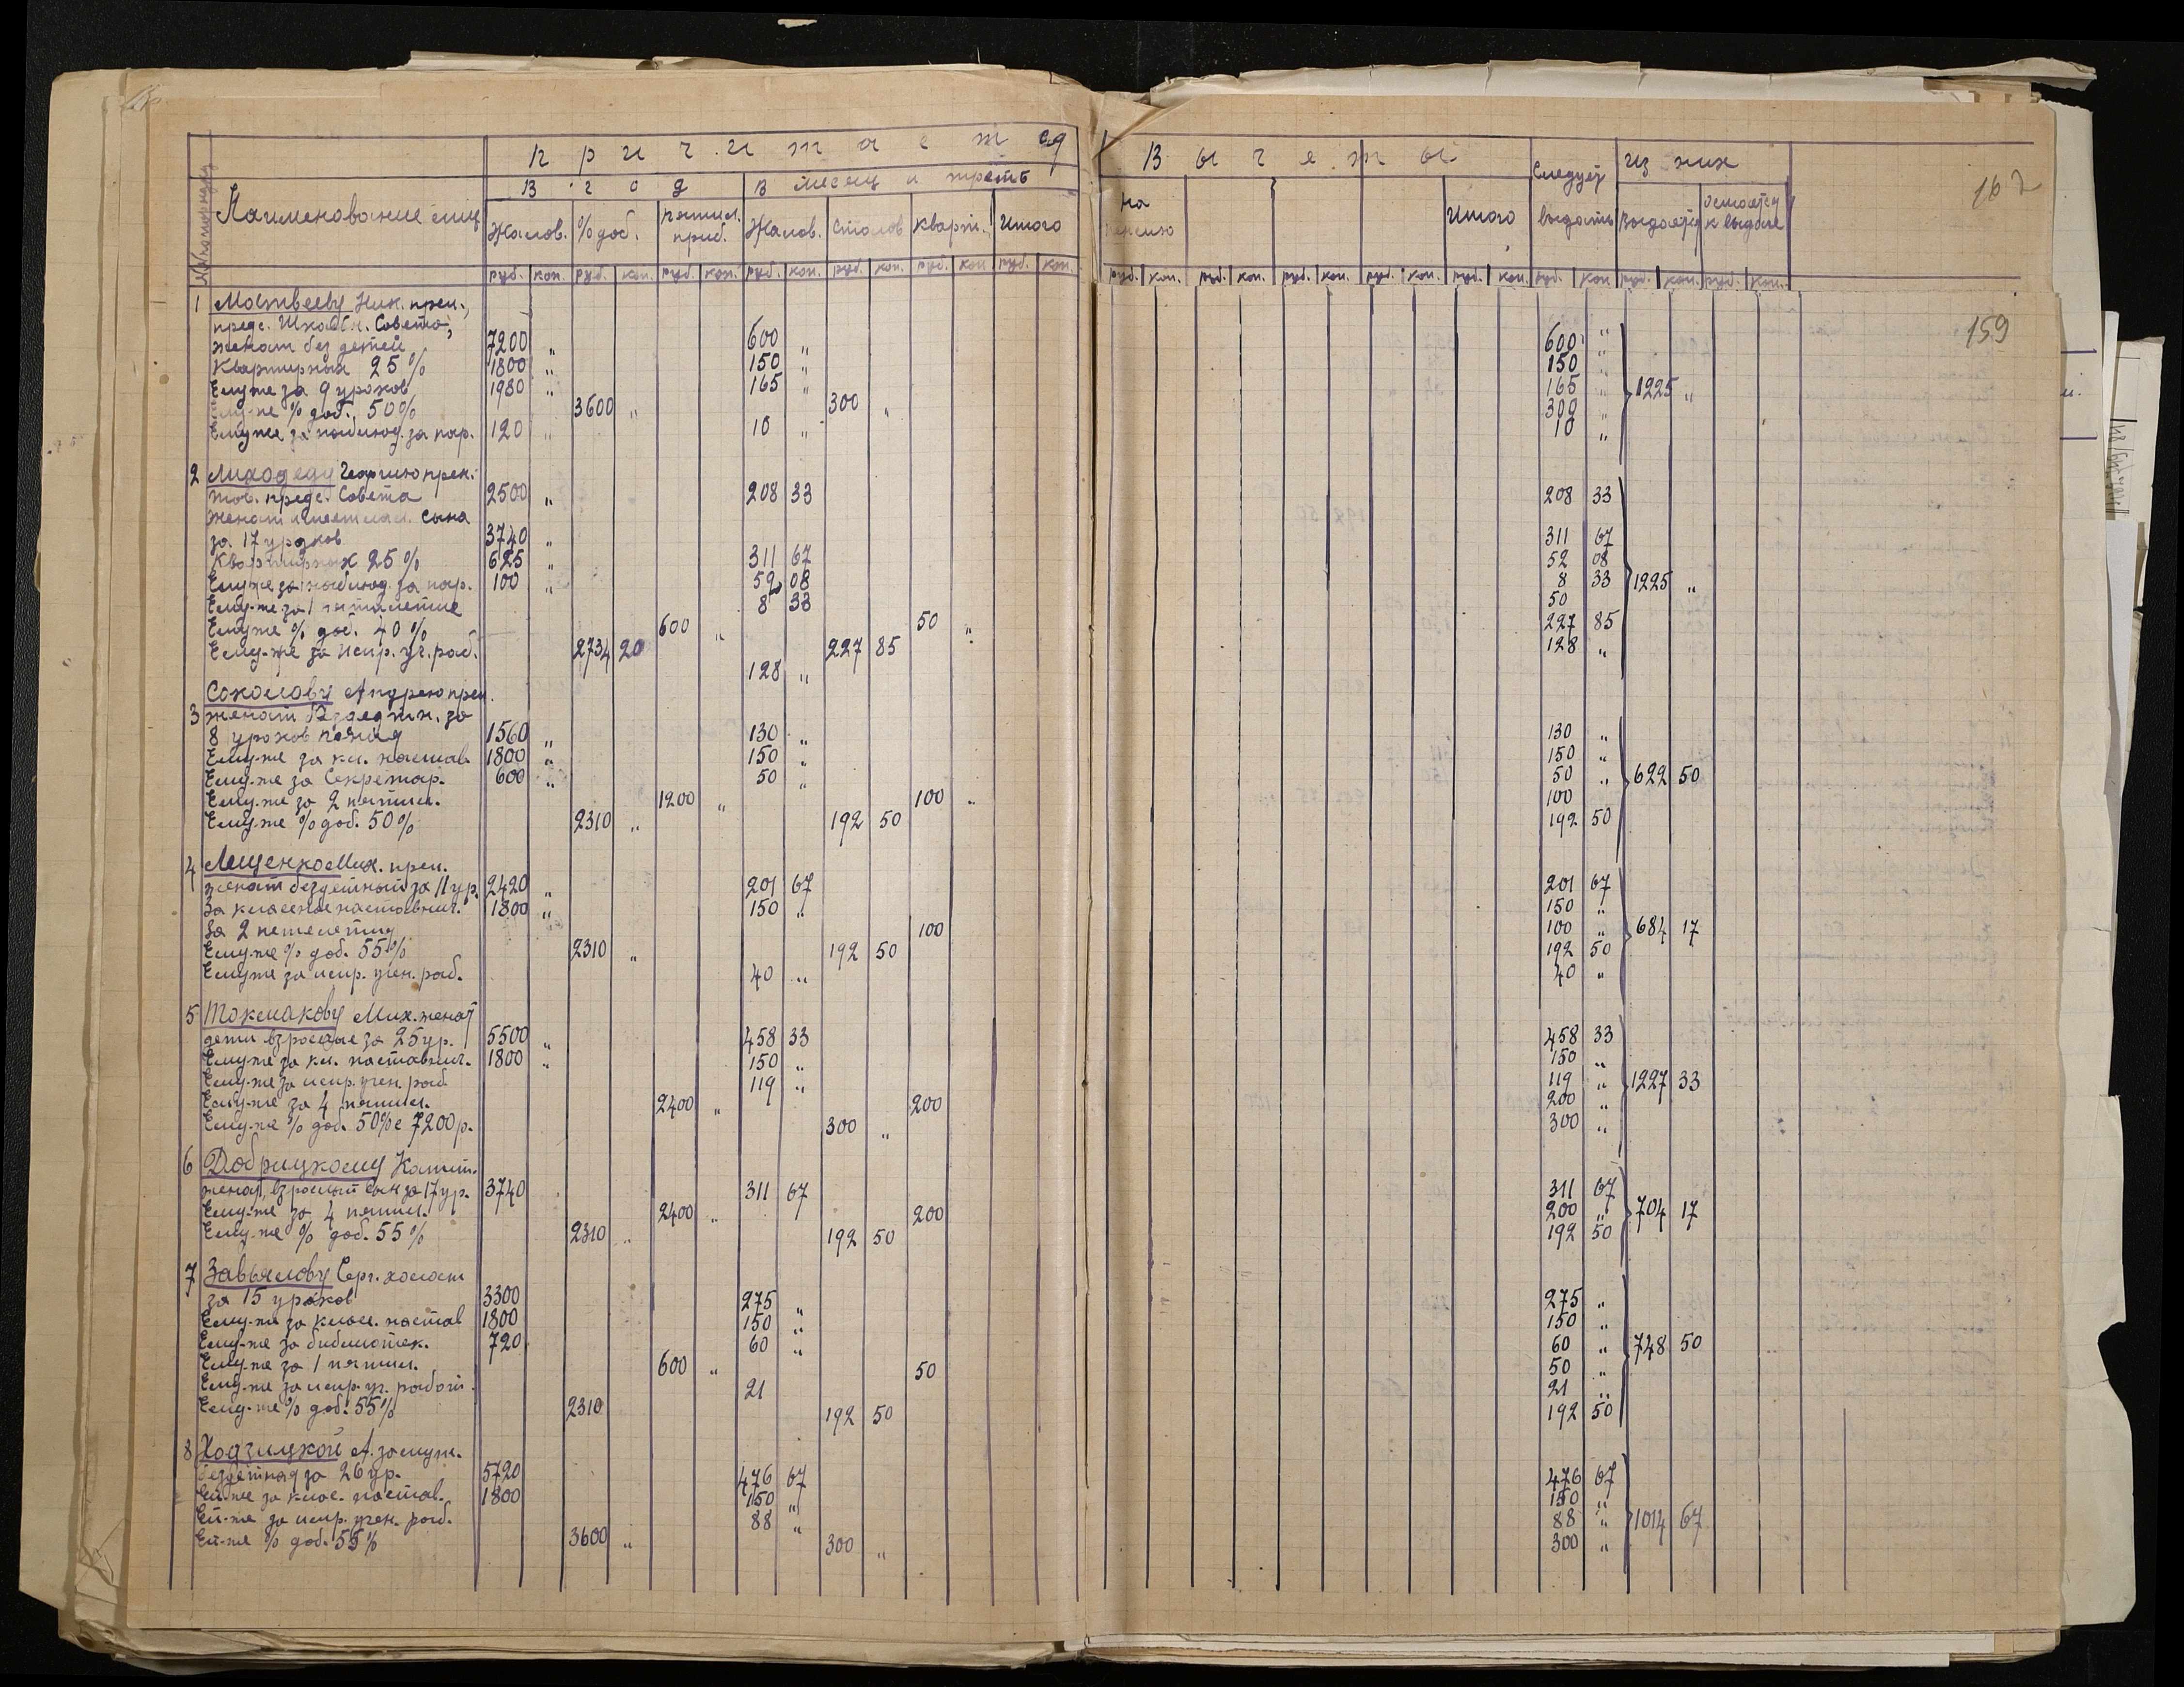 Причитается
Вычеты
Следует выдать
Из них
В год
В месяц и треть
№№ по порядку
Наименование лиц
Жалов.
% доб.
пятил. приб.
Жалов.
Столов
Кварт.
Итого
на пенсию
Итого
Выдаётся
Остаётся к выдаче
руб. коп. руб. коп. руб. коп. руб. коп. руб. коп. руб. коп. руб. коп.
руб. коп. руб. коп. руб. коп. руб. коп. руб. коп. руб. коп. руб. коп. руб. коп.
162
159
1 Матвееву Ник. преп.,
предс. Школьн. Совета,
женат без детей 7200 „ 600 „ 600 „
Квартирных 25% 1800 „ 150 „ 150 „
Ему же за 9 уроков 1980 „ 165 „ 165 „ 1225 „
Ему-же % доб. 50% 3600 „ 300 „ 300 „
Ему же за наблюд. за пар. 120 „ 10 „ 10 „
2 Лиходеду Георгию преп.
тов. предс. Совета 2500 „ 208 33 208 33
женат имеет мал. сына
за 17 уроков 3740 „ 311 67 311 67
Квартирных 25% 625 „ 52 08 52 08
Ему же за наблюд. за пар. 100 „ 8 33 8 33 1225 „
Ему-же за 1 пятилетие 600 „ 50 „ 50
Ему же % доб. 40% 2734 20 227 85 227 85
Ему-же за испр. уч. раб. 128 „ 128 „
Соколову Андрею преп.
3 женат бездетн. за
8 уроков пения 1560 „ 130 „ 130 „
Ему-же за кл. настав. 1800 „ 150 „ 150 „
Ему-же за Секретар. 600 „ 50 „ 50 „ 622 50
Ему-же за 2 пятил. 1200 „ 100 „ 100
Ему-же % доб. 50% 2310 „ 192 50 192 50
4 Лещенко Мих. преп.
женат бездетный за 11 ур. 2420 „ 201 67 201 67
За классное наставнич. 1800 „ 150 „ 150 „
За 2 петелетия 100 100 „ 684 17
Ему-же % доб. 55% 2310 „ 192 50 192 50
Ему же за испр. учен. раб. 40 „ 40 „
5 Токмакову Мих. женат
дети взрослые за 25 ур. 5500 „ 458 33 458 33
Ему-же за кл. наставнич. 1800 „ 150 „ 150 „
Ему-же за испр. учен. раб. 119 „ 119 „ 1227 33
Ему-же за 4 пятил. 2400 „ 200 200 „
Ему-же % доб. 50% с 7200 р. 300 „ 300 „
6 Добрицкому Капит.
женат, взрослый сын за 17 ур. 3740 311 67 311 67
Ему-же за 4 пятил. 2400 „ 200 200 „ 704 17
Ему-же % доб. 55% 2310 „ 192 50 192 50
7 Завьялову Серг. холост
за 15 уроков 3300 275 „ 275 „
Ему-же за класс. настав 1800 150 „ 150 „
Ему-же за библиотек. 720 60 „ 60 „ 748 50
Ему-же за 1 пятил. 600 „ 50 50 „
Ему-же за испр. уч. работ. 21 21 „
Ему-же % доб. 55% 2310 192 50 192 50
8 Ходзицкой А. замуж.
бездетная за 26 ур. 5720 476 67 476 67
Ей-же за клас. настав. 1800 150 „ 150 „
Ей-же за испр. учен. раб. 88 „ 88 „ 1014 67
Ей-же % доб. 55% 3600 „ 300 „ 300 „